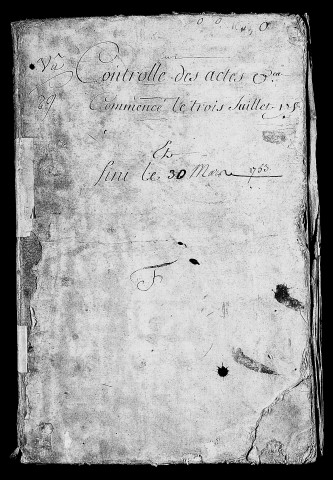 Controlle des actes &ca
Commencé le trois Juillet
Et
fini le 30 Mars 1753
F